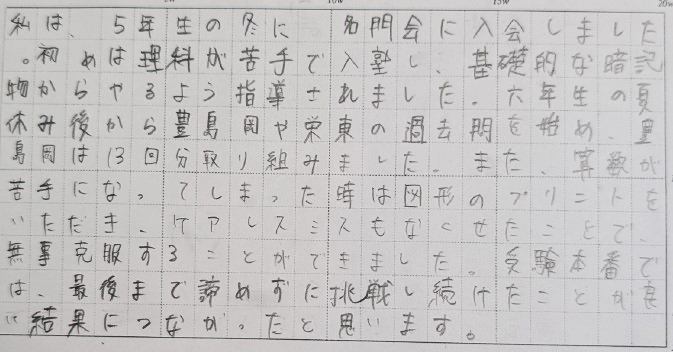 私は、5年生の冬に 名門会に入会しました
。初めは理科が苦手で入塾し、基礎的な暗記
物からやるよう指導されました。六年生の夏
休み後から豊島岡や栄東の過去問を始め、豊
島岡は13回分取り組みました。また、算数が
苦手になってしまった時は図形のプリントを
いただき、ケアレスミスもなくせたことで、
無事克服することができました。受験本番で
は、最後まで諦めずに挑戦し続けたことが良
い結果につながったと思います。